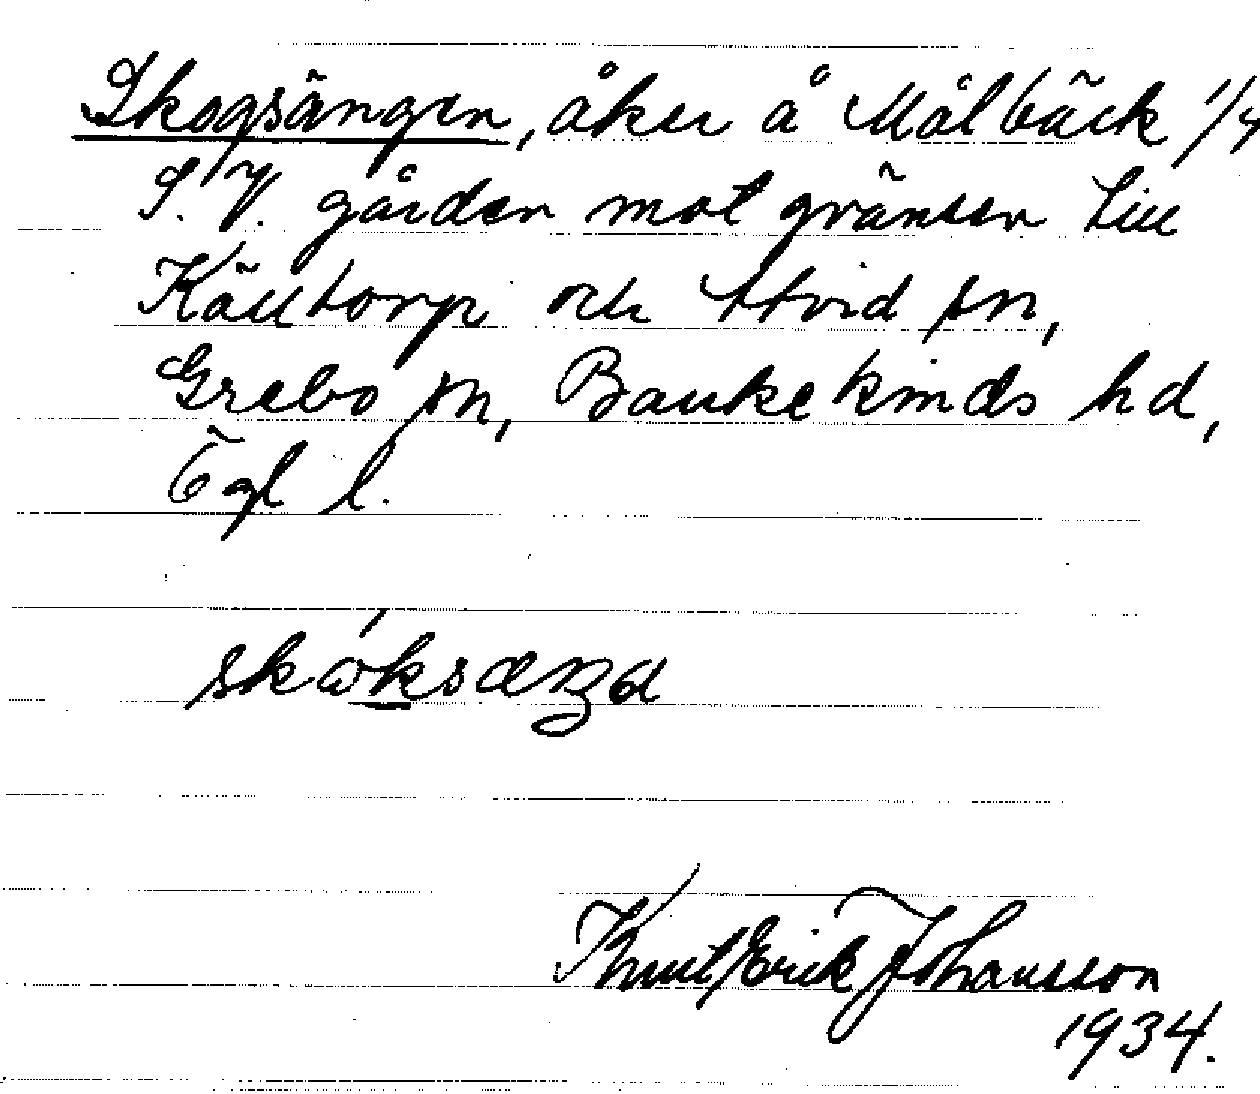 Skogsängen, åker å Målbäck 1/4
S.V. gården mot gränsen till
Källtorp och Åtvid sn,
Grebo sn, Bankekinds hd,
Ögl l.
skωksæŋa
Knut Erik Johansson
1934.